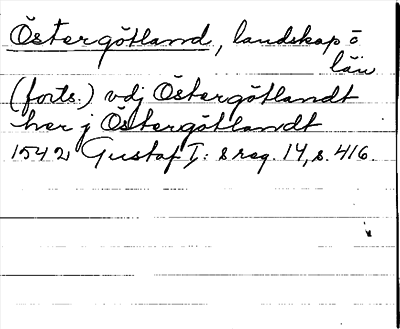 Östergötland, landskap o
län
(forts.) vdj Östergötlandt
her j Östergötlandt
1542 Gustaf I:s reg. 14, s. 416.